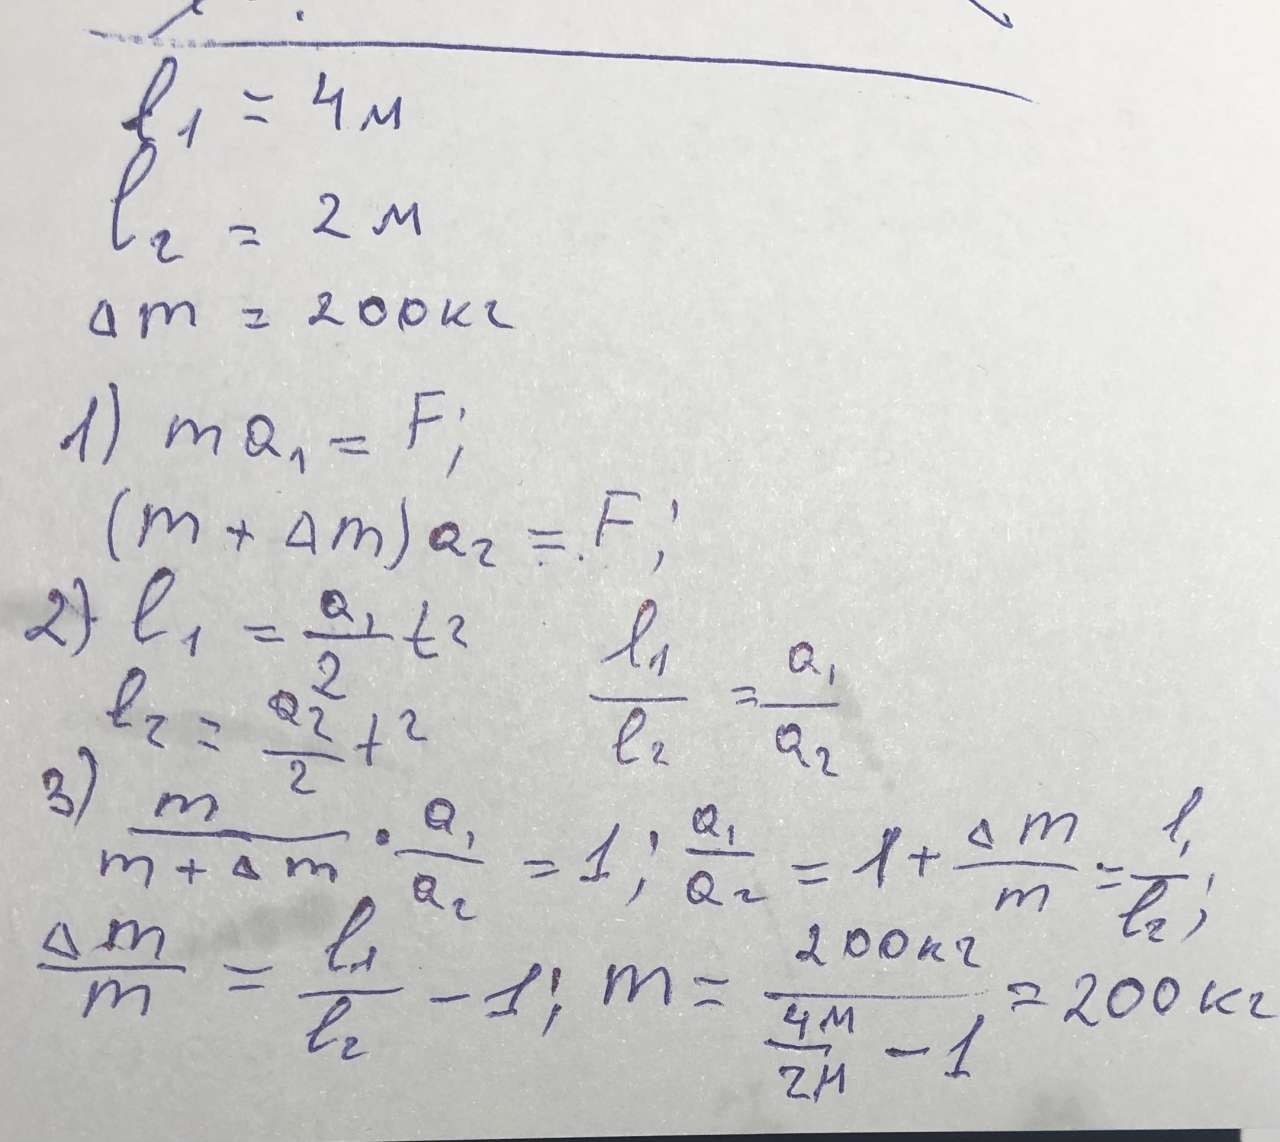 l₁ = 4м
l₂ = 2м
Δm = 200кг
1) ma₁ = F;
(m + Δm)a₂ = F;
2) l₁ = a₁/2 t² l₁/l₂ = a₁/a₂
l₂ = a₂/2 t²
3) m/(m + Δm) · a₁/a₂ = 1; a₁/a₂ = 1 + Δm/m = l₁/l₂;
Δm/m = l₁/l₂ - 1; m = 200кг/(4м/2м - 1) = 200кг